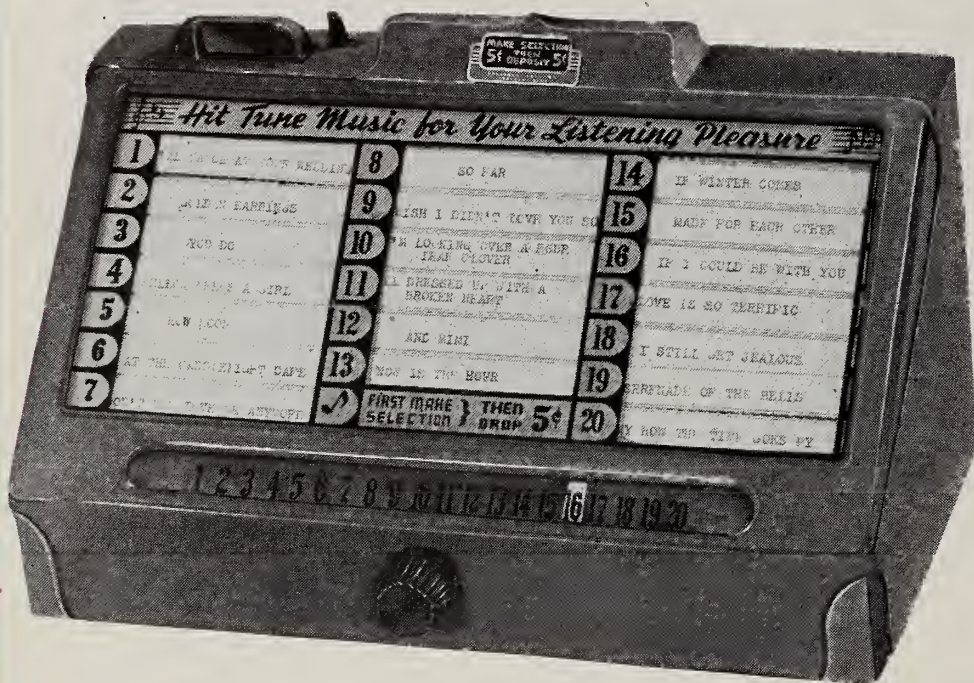 MAKE SELECTION
THEN
5¢ DEPOSIT 5¢
Hit Tune Music for Your Listening Pleasure
1
AT YOUR WEDDING
2
GOLDEN EARRINGS
3
YOU DO
4
A GIRL
5
HOW SOON
6
AT THE CANDLELIGHT CAFE
7
ANYMORE
8
SO FAR
9
WISH I DIDN'T LOVE YOU SO
10
I'M LOOKING OVER A FOUR
LEAF CLOVER
11
DRESSED UP WITH A
BROKEN HEART
12
AND MIMI
13
NOW IS THE HOUR
FIRST MAKE
SELECTION } THEN
DROP 5¢
14
IF WINTER COMES
15
MADE FOR EACH OTHER
16
IF I COULD BE WITH YOU
17
LOVE IS SO TERRIFIC
18
I STILL GET JEALOUS
19
SERENADE OF THE BELLS
20
MY HOW THE TIME GOES BY
1 2 3 4 5 6 7 8 9 10 11 12 13 14 15 16 17 18 19 20